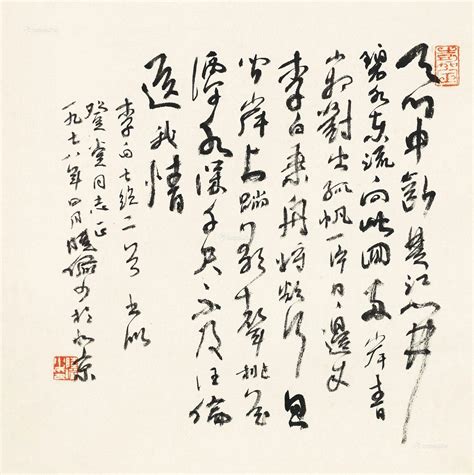 天门中斷楚江開
碧水东流向此回两岸青
山相對出孤帆一片日邊来
李白乘舟将欲行忽
闻岸上踏歌聲桃花
潭水深千尺不及汪倫
送我情
李白七绝二首 书以
堂同志正
一九七八年四月 於北京